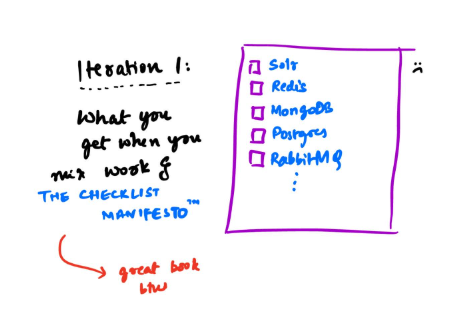 Iteration 1:
What you
get when you
mix work &
THE CHECKLIST
MANIFESTO™
great book
btw
Solr
Redis
MongoDB
Postgres
RabbitMQ